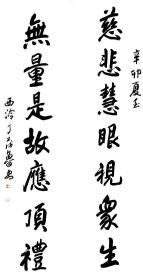 辛卯夏至
慈悲慧眼視衆生
無量是故應頂禮
西泠丁